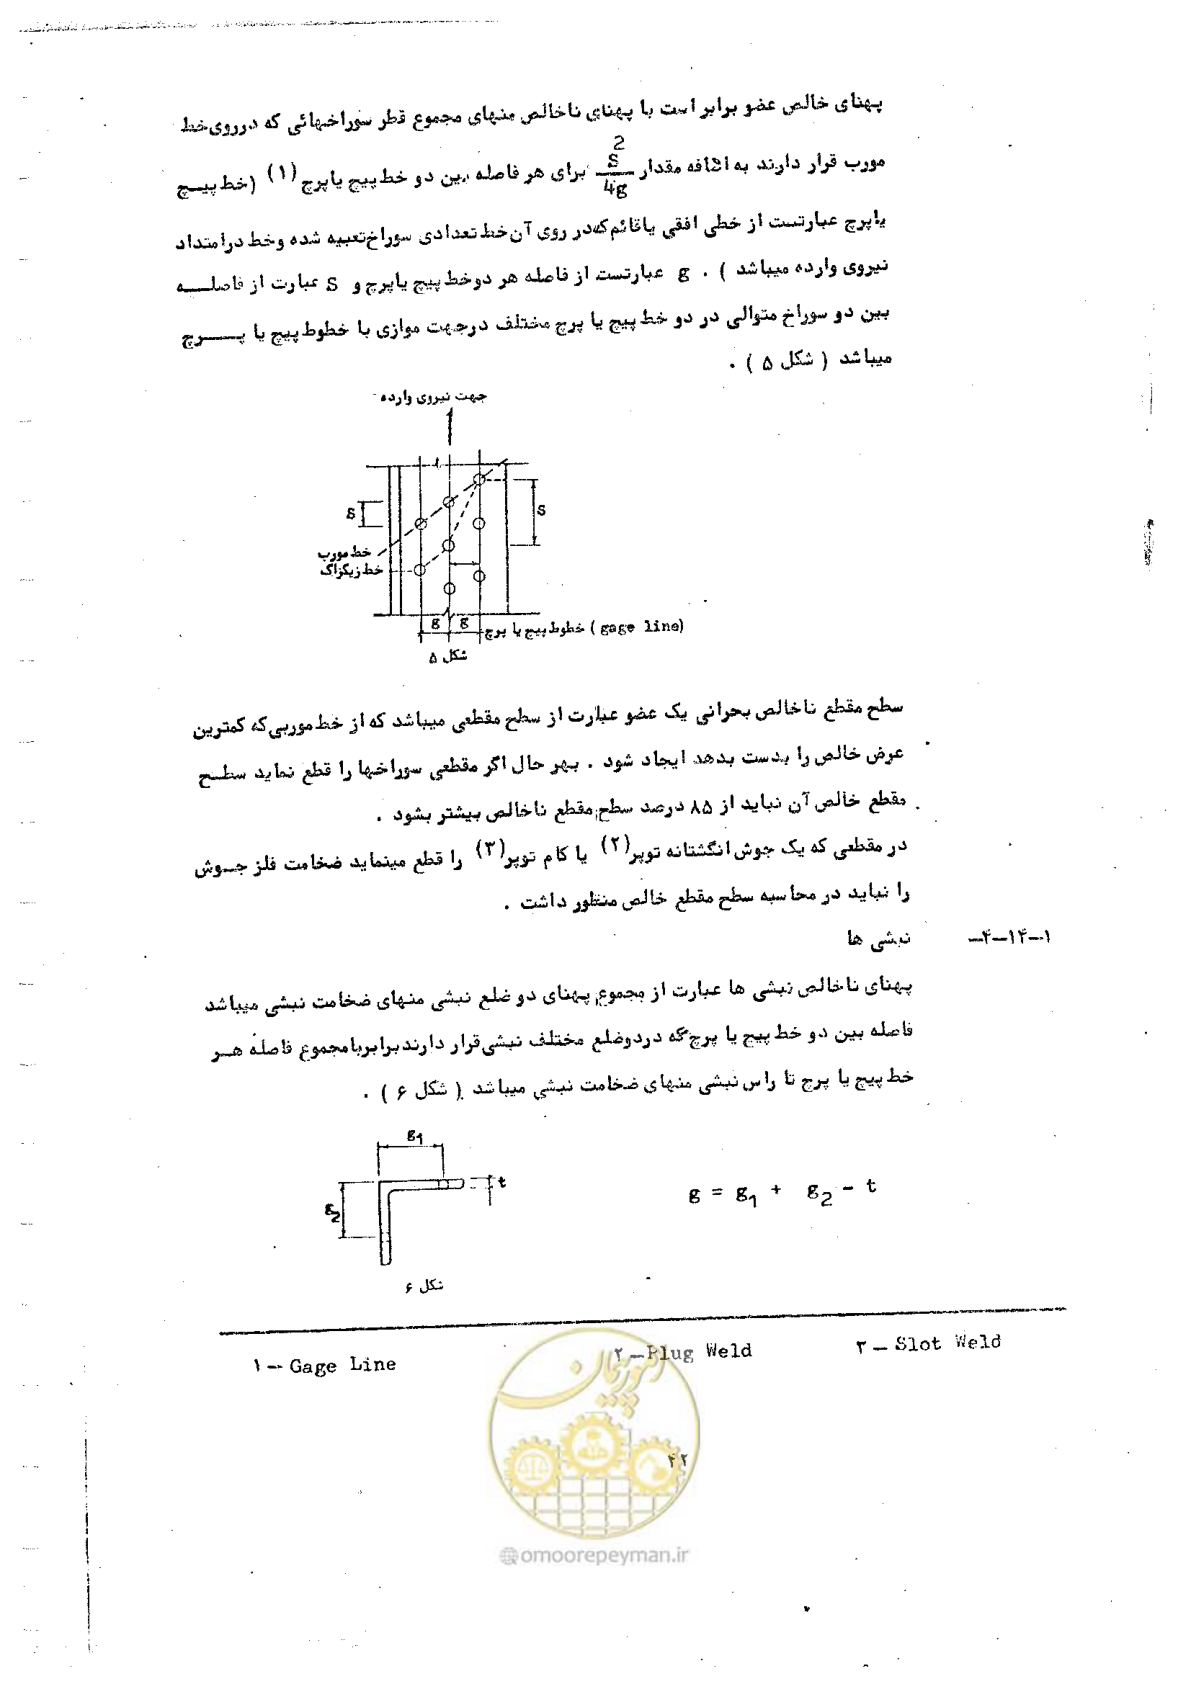 پهنای خالص عضو برابر است با پهنای ناخالص منهای مجموع قطر سوراخهائی که درروی خط
مورب قرار دارند به اضافه مقدار S²/4g برای هر فاصله بین دو خط پیچ یا پرچ (۱) (خط پیچ
یا پرچ عبارتست از خطی افقی یا قائم که در روی آن خط تعدادی سوراخ تعبیه شده و خط در امتداد
نیروی وارده میباشد ) . g عبارتست از فاصله هر دو خط پیچ یا پرچ و S عبارت از فاصله
بین دو سوراخ متوالی در دو خط پیچ یا پرچ مختلف درجهت موازی با خطوط پیچ یا پرچ
میباشد ( شکل ۵ ) .
جهت نیروی وارده
S
S
خط مورب
خط زیگزاگ
g g
خطوط پیچ یا پرچ ( gage line)
شکل ۵
سطح مقطع ناخالص بحرانی یک عضو عبارت از سطح مقطعی میباشد که از خط موربی که کمترین
عرض خالص را بدست بدهد ایجاد شود . بهر حال اگر مقطعی سوراخها را قطع نماید سطح
مقطع خالص آن نباید از ۸۵ درصد سطح مقطع ناخالص بیشتر بشود .
در مقطعی که یک جوش انگشتانه توپر (۲) یا کام توپر (۳) را قطع مینماید ضخامت فلز جوش
را نباید در محاسبه سطح مقطع خالص منظور داشت .
۱-۱۴-۴- نبشی ها
پهنای ناخالص نبشی ها عبارت از مجموع پهنای دو ضلع نبشی منهای ضخامت نبشی میباشد
فاصله بین دو خط پیچ یا پرچ که در دوضلع مختلف نبشی قرار دارند برابر با مجموع فاصله هر
خط پیچ یا پرچ تا راس نبشی منهای ضخامت نبشی میباشد ( شکل ۶ ) .
g1
t
g2
g = g1 + g2 - t
شکل ۶
۱- Gage Line
۲- Plug Weld
۳- Slot Weld
امور پیمان
۴۲
@omoorepeyman.ir